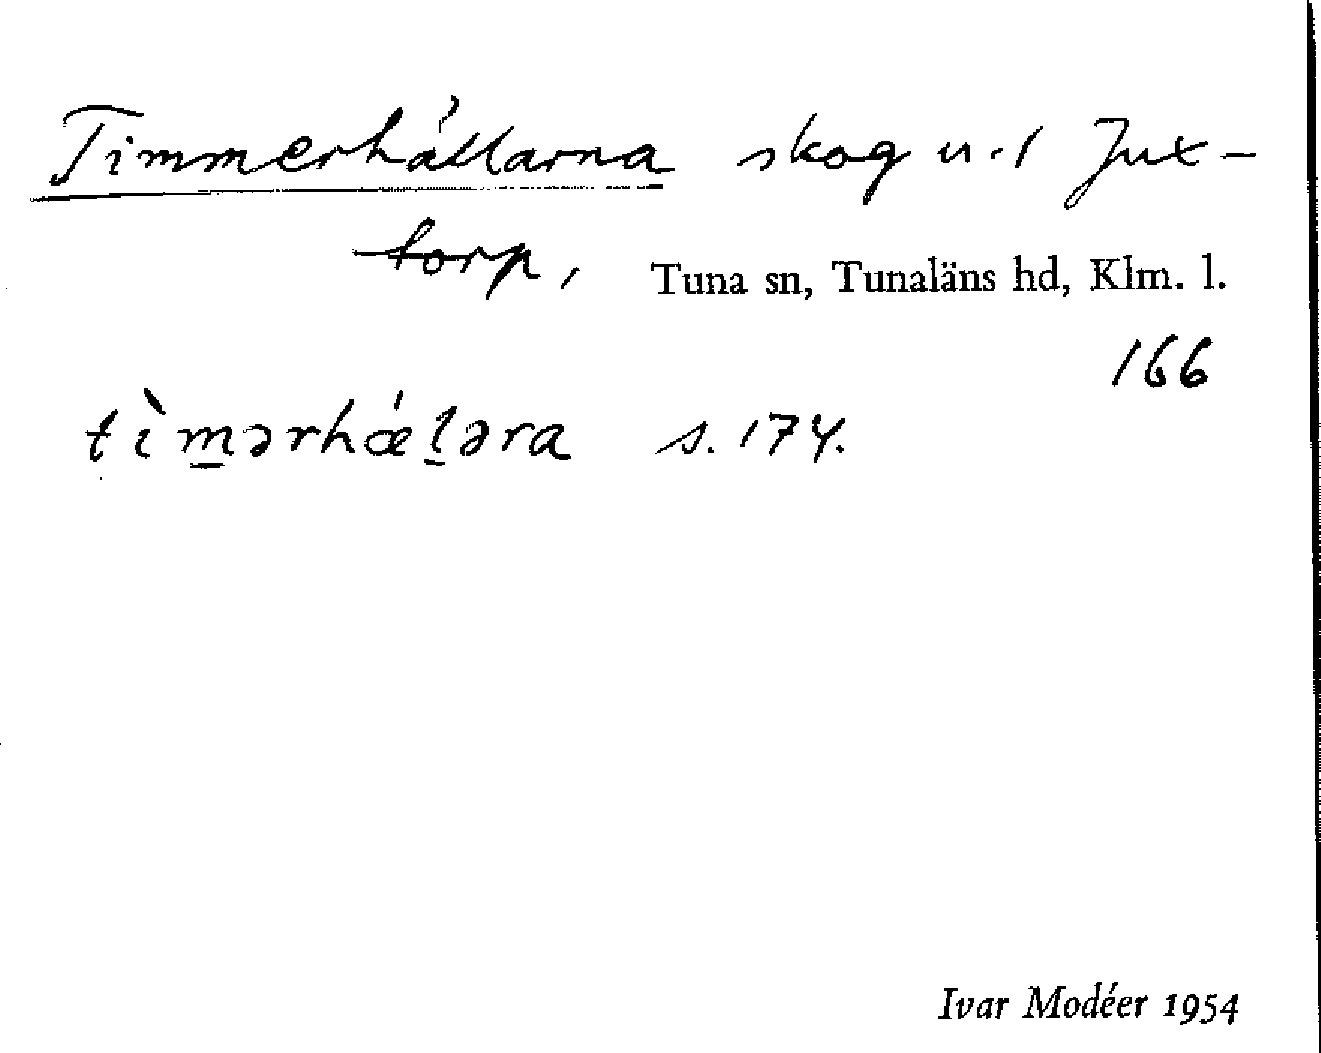 Timmerhällarna skog u. l Jux-
torp, Tuna sn, Tunaläns hd, Klm. l.
166
tìm̲ərhǽl̲əra s. 174.
Ivar Modéer 1954